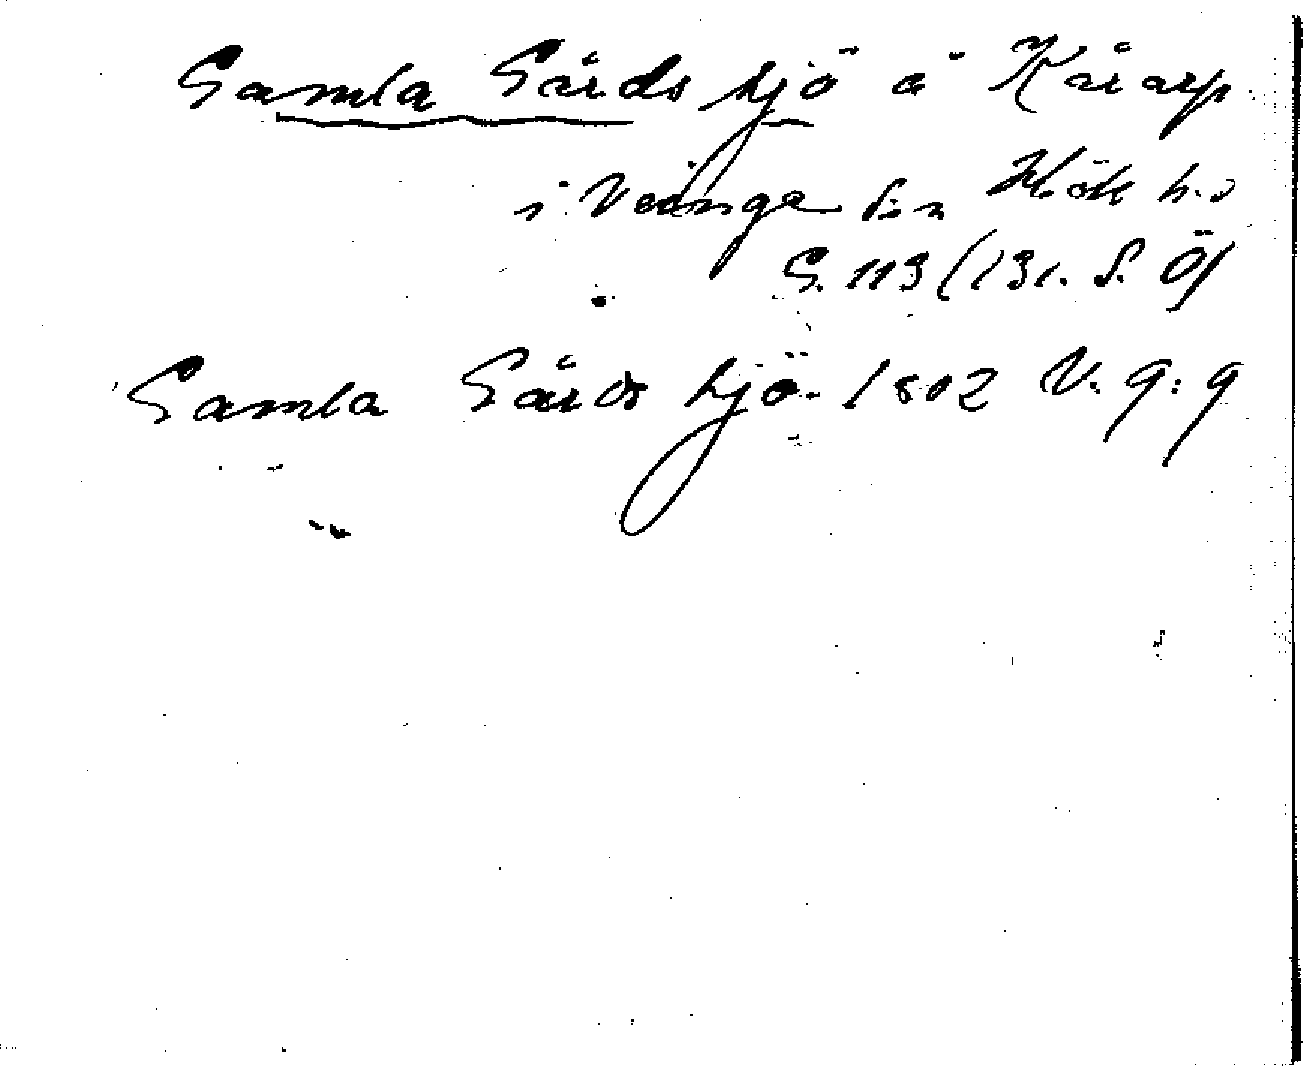 Gamla Gårds hjö å Kårarp
i Veinge sn Hök h.d
G. 113 (131. S. Ö)
Gamla Gårds hjö. 1802 V: 9: 9